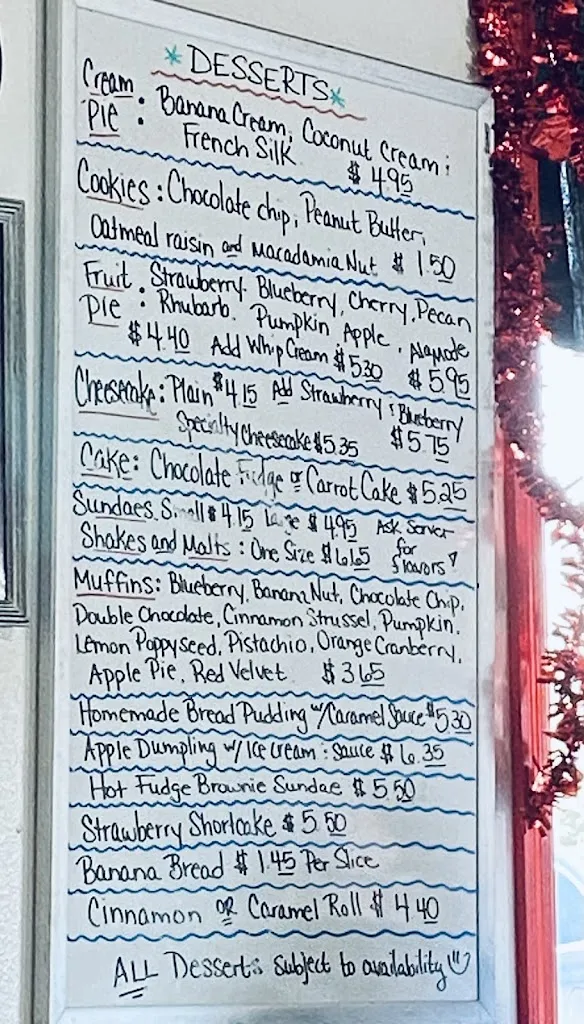 * DESSERTS *
Cream Pie : Banana Cream, Coconut Cream :
French Silk $ 4.95
Cookies : Chocolate chip, Peanut Butter,
Oatmeal raisin and Macadamia Nut $ 1.50
Fruit Pie : Strawberry. Blueberry, Cherry, Pecan
Rhubarb. Pumpkin, Apple, Alamode
$ 4.40 Add Whip Cream $ 5.30 $ 5.95
Cheesecake : Plain $ 4.15 Add Strawberry : Blueberry
Specialty Cheesecake $ 5.35 $ 5.75
Cake : Chocolate Fudge or Carrot Cake $ 5.25
Sundaes. Small $ 4.15 Large $ 4.95 Ask Server
Shakes and Malts : One Size $ 6.65 for flavors!
Muffins : Blueberry, Banana Nut, Chocolate Chip,
Double Chocolate, Cinnamon Strussel, Pumpkin,
Lemon Poppyseed, Pistachio, Orange Cranberry,
Apple Pie, Red Velvet $ 3.65
Homemade Bread Pudding w/ Caramel Sauce $ 5.30
Apple Dumpling w/ Ice Cream : Sauce $ 6.35
Hot Fudge Brownie Sundae $ 5.50
Strawberry Shortcake $ 5.50
Banana Bread $ 1.45 Per Slice
Cinnamon OR Caramel Roll $ 4.40
ALL Desserts subject to availability